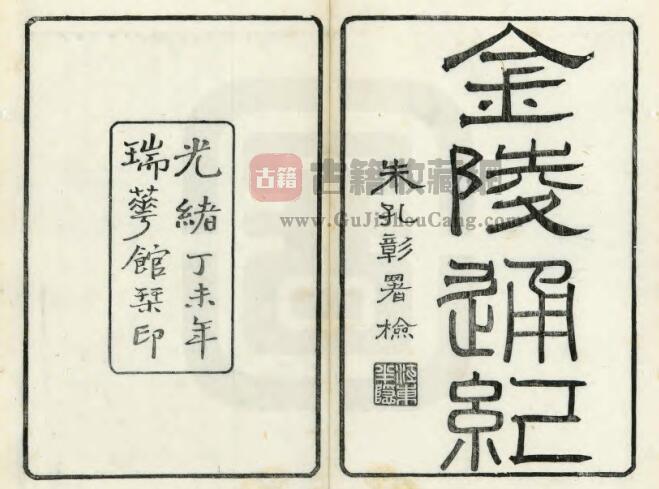 金陵通紀
朱孔彰署檢
江東半隱
光緒丁未年
瑞蕐館栞印
古籍
古籍收藏
www.GuJiShouCang.com